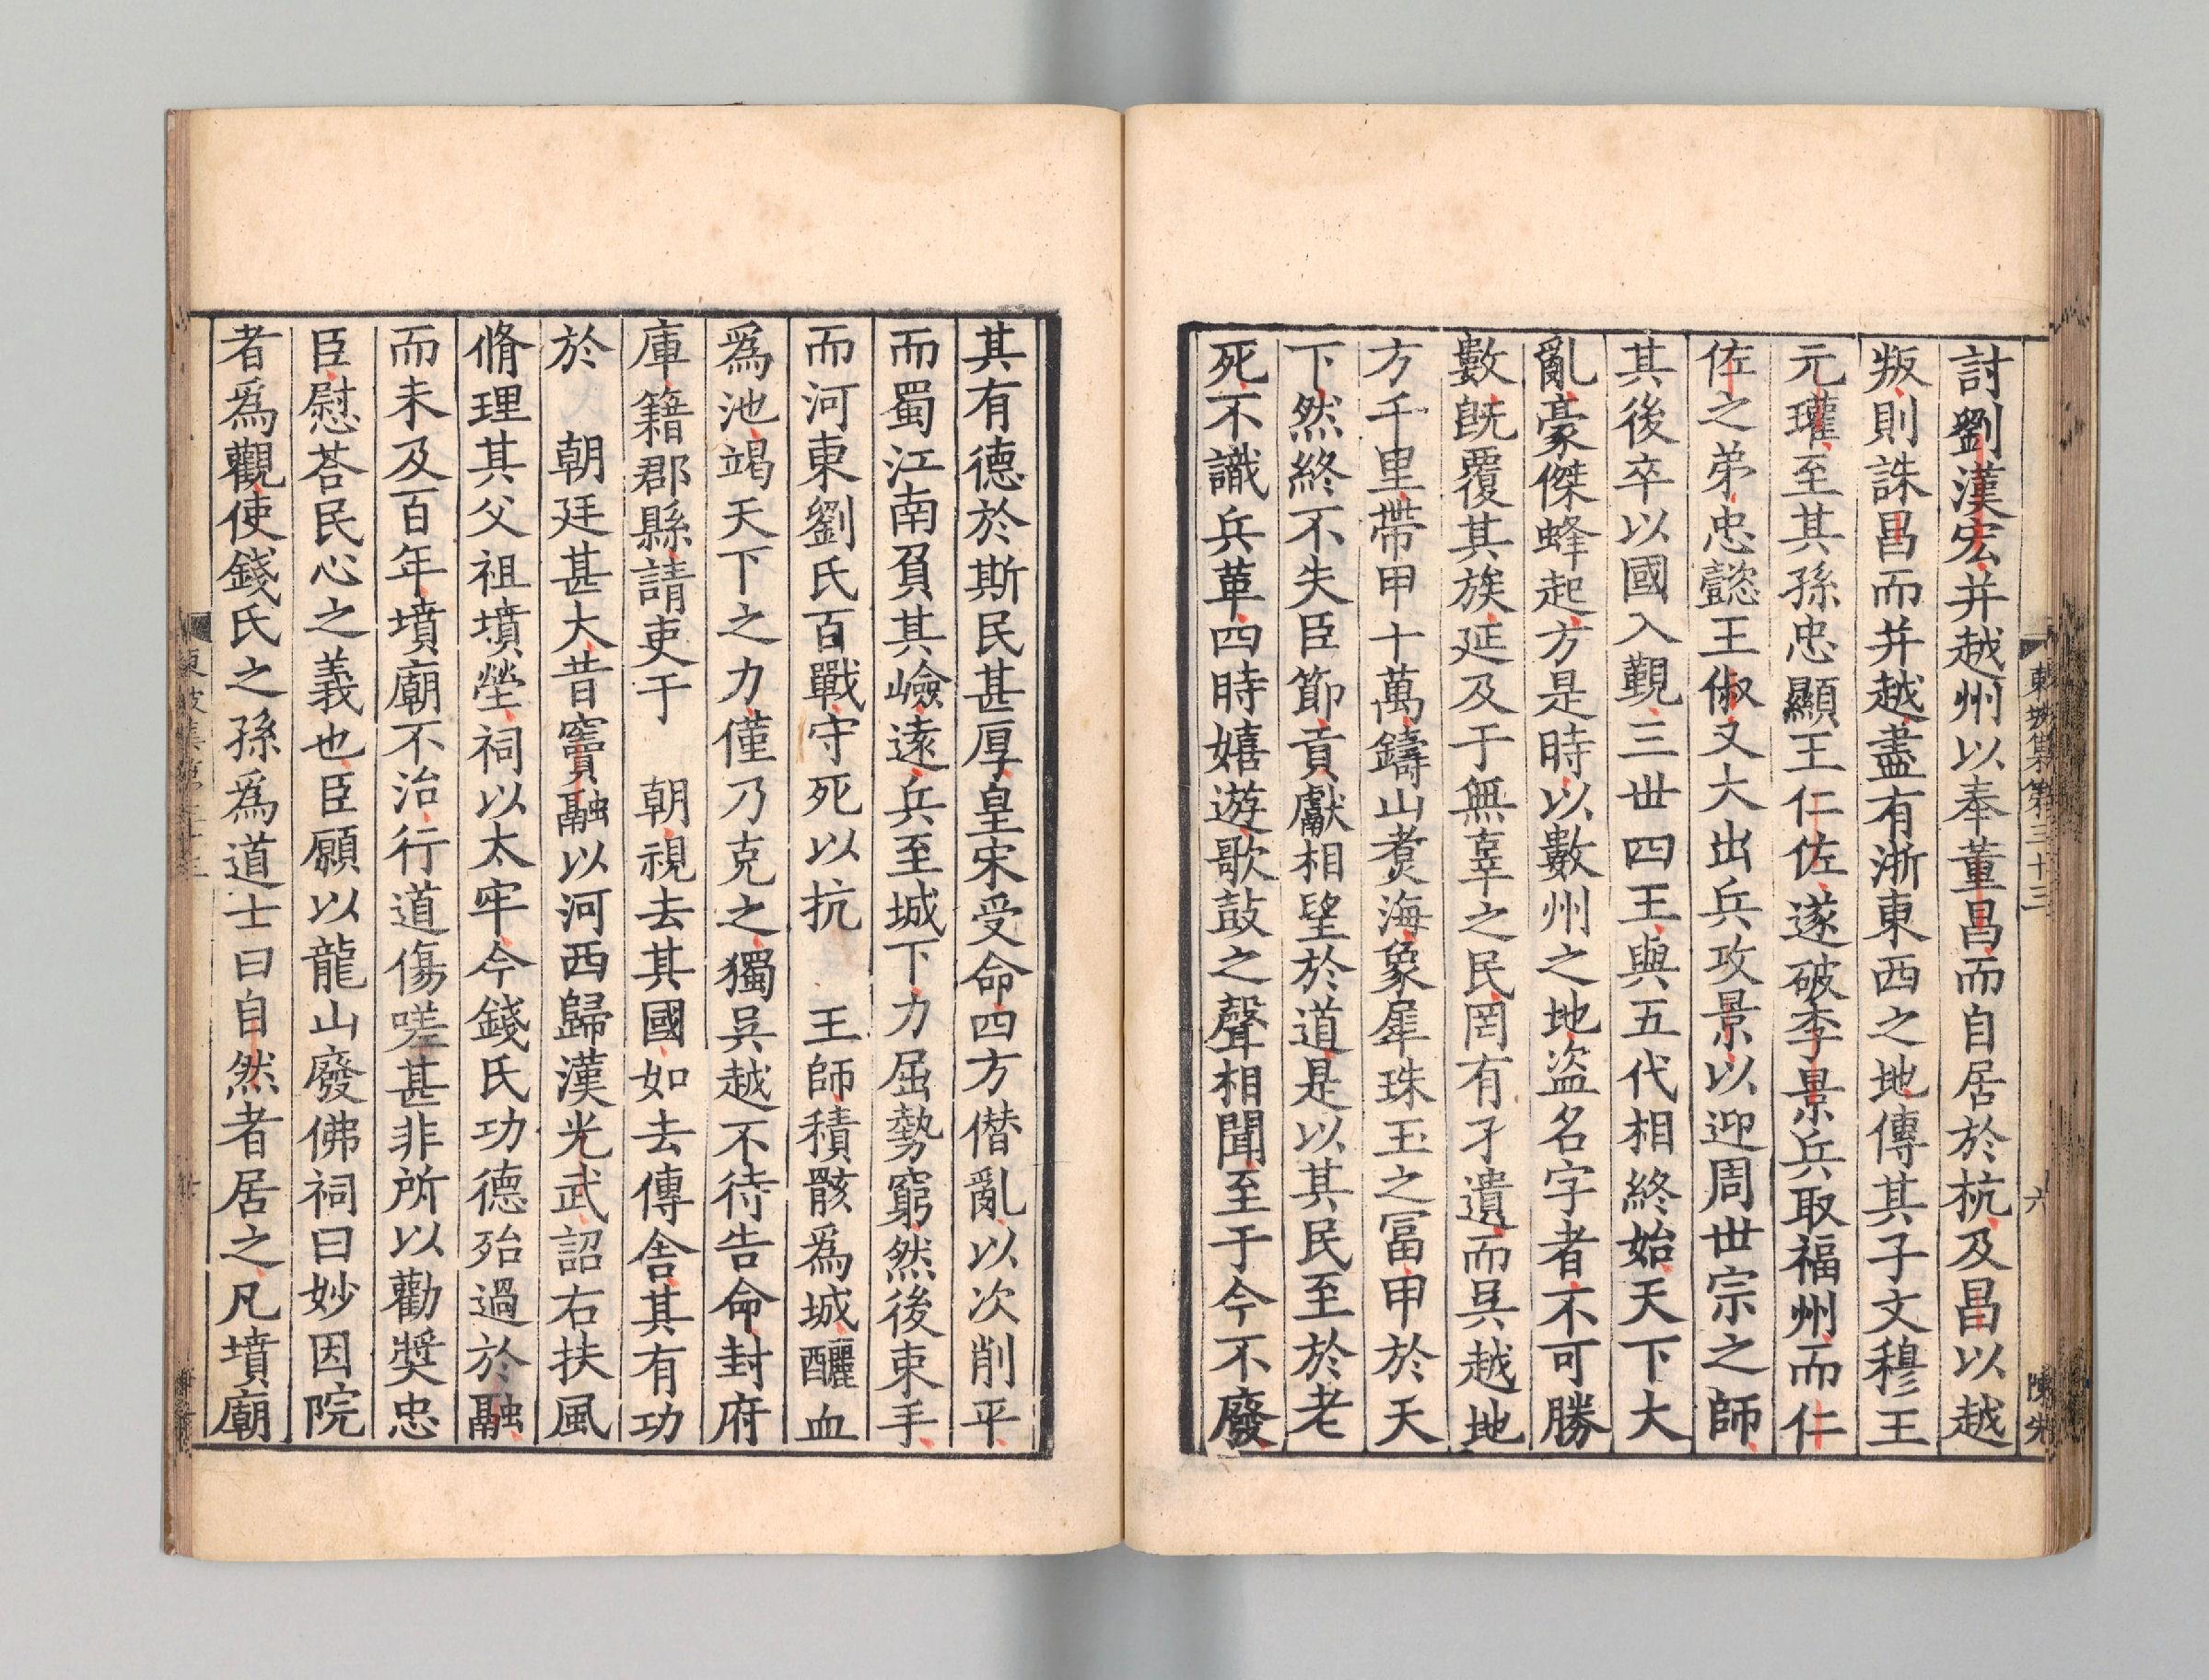 東坡集第三十三
六
討劉漢宏并越州以奉董昌而自居於杭及昌以越
叛則誅昌而并越盡有浙東西之地傳其子文穆王
元瓘至其孫忠顯王仁佐遂破李景兵取福州而仁
佐之弟忠懿王俶又大出兵攻景以迎周世宗之師
其後卒以國入覲三世四王與五代相終始天下大
亂豪傑蜂起方是時以數州之地盜名字者不可勝
數旣覆其族延及于無辜之民罔有孑遺而吳越地
方千里帶甲十萬鑄山煑海象犀珠玉之冨甲於天
下然終不失臣節貢獻相望於道是以其民至於老
死不識兵革四時嬉遊歌鼓之聲相聞至于今不廢
其有德於斯民甚厚皇宋受命四方僭亂以次削平
而蜀江南負其嶮遠兵至城下力屈勢窮然後束手
而河東劉氏百戰守死以抗　王師積骸爲城釃血
爲池竭天下之力僅乃克之獨吳越不待告命封府
庫籍郡縣請吏于　朝視去其國如去傳舍其有功
於　朝廷甚大昔竇融以河西歸漢光武詔右扶風
脩理其父祖墳塋祠以太牢今錢氏功德殆過於融
而未及百年墳廟不治行道傷嗟甚非所以勸奬忠
臣慰荅民心之義也臣願以龍山廢佛祠曰妙因院
者爲觀使錢氏之孫爲道士曰自然者居之凡墳廟